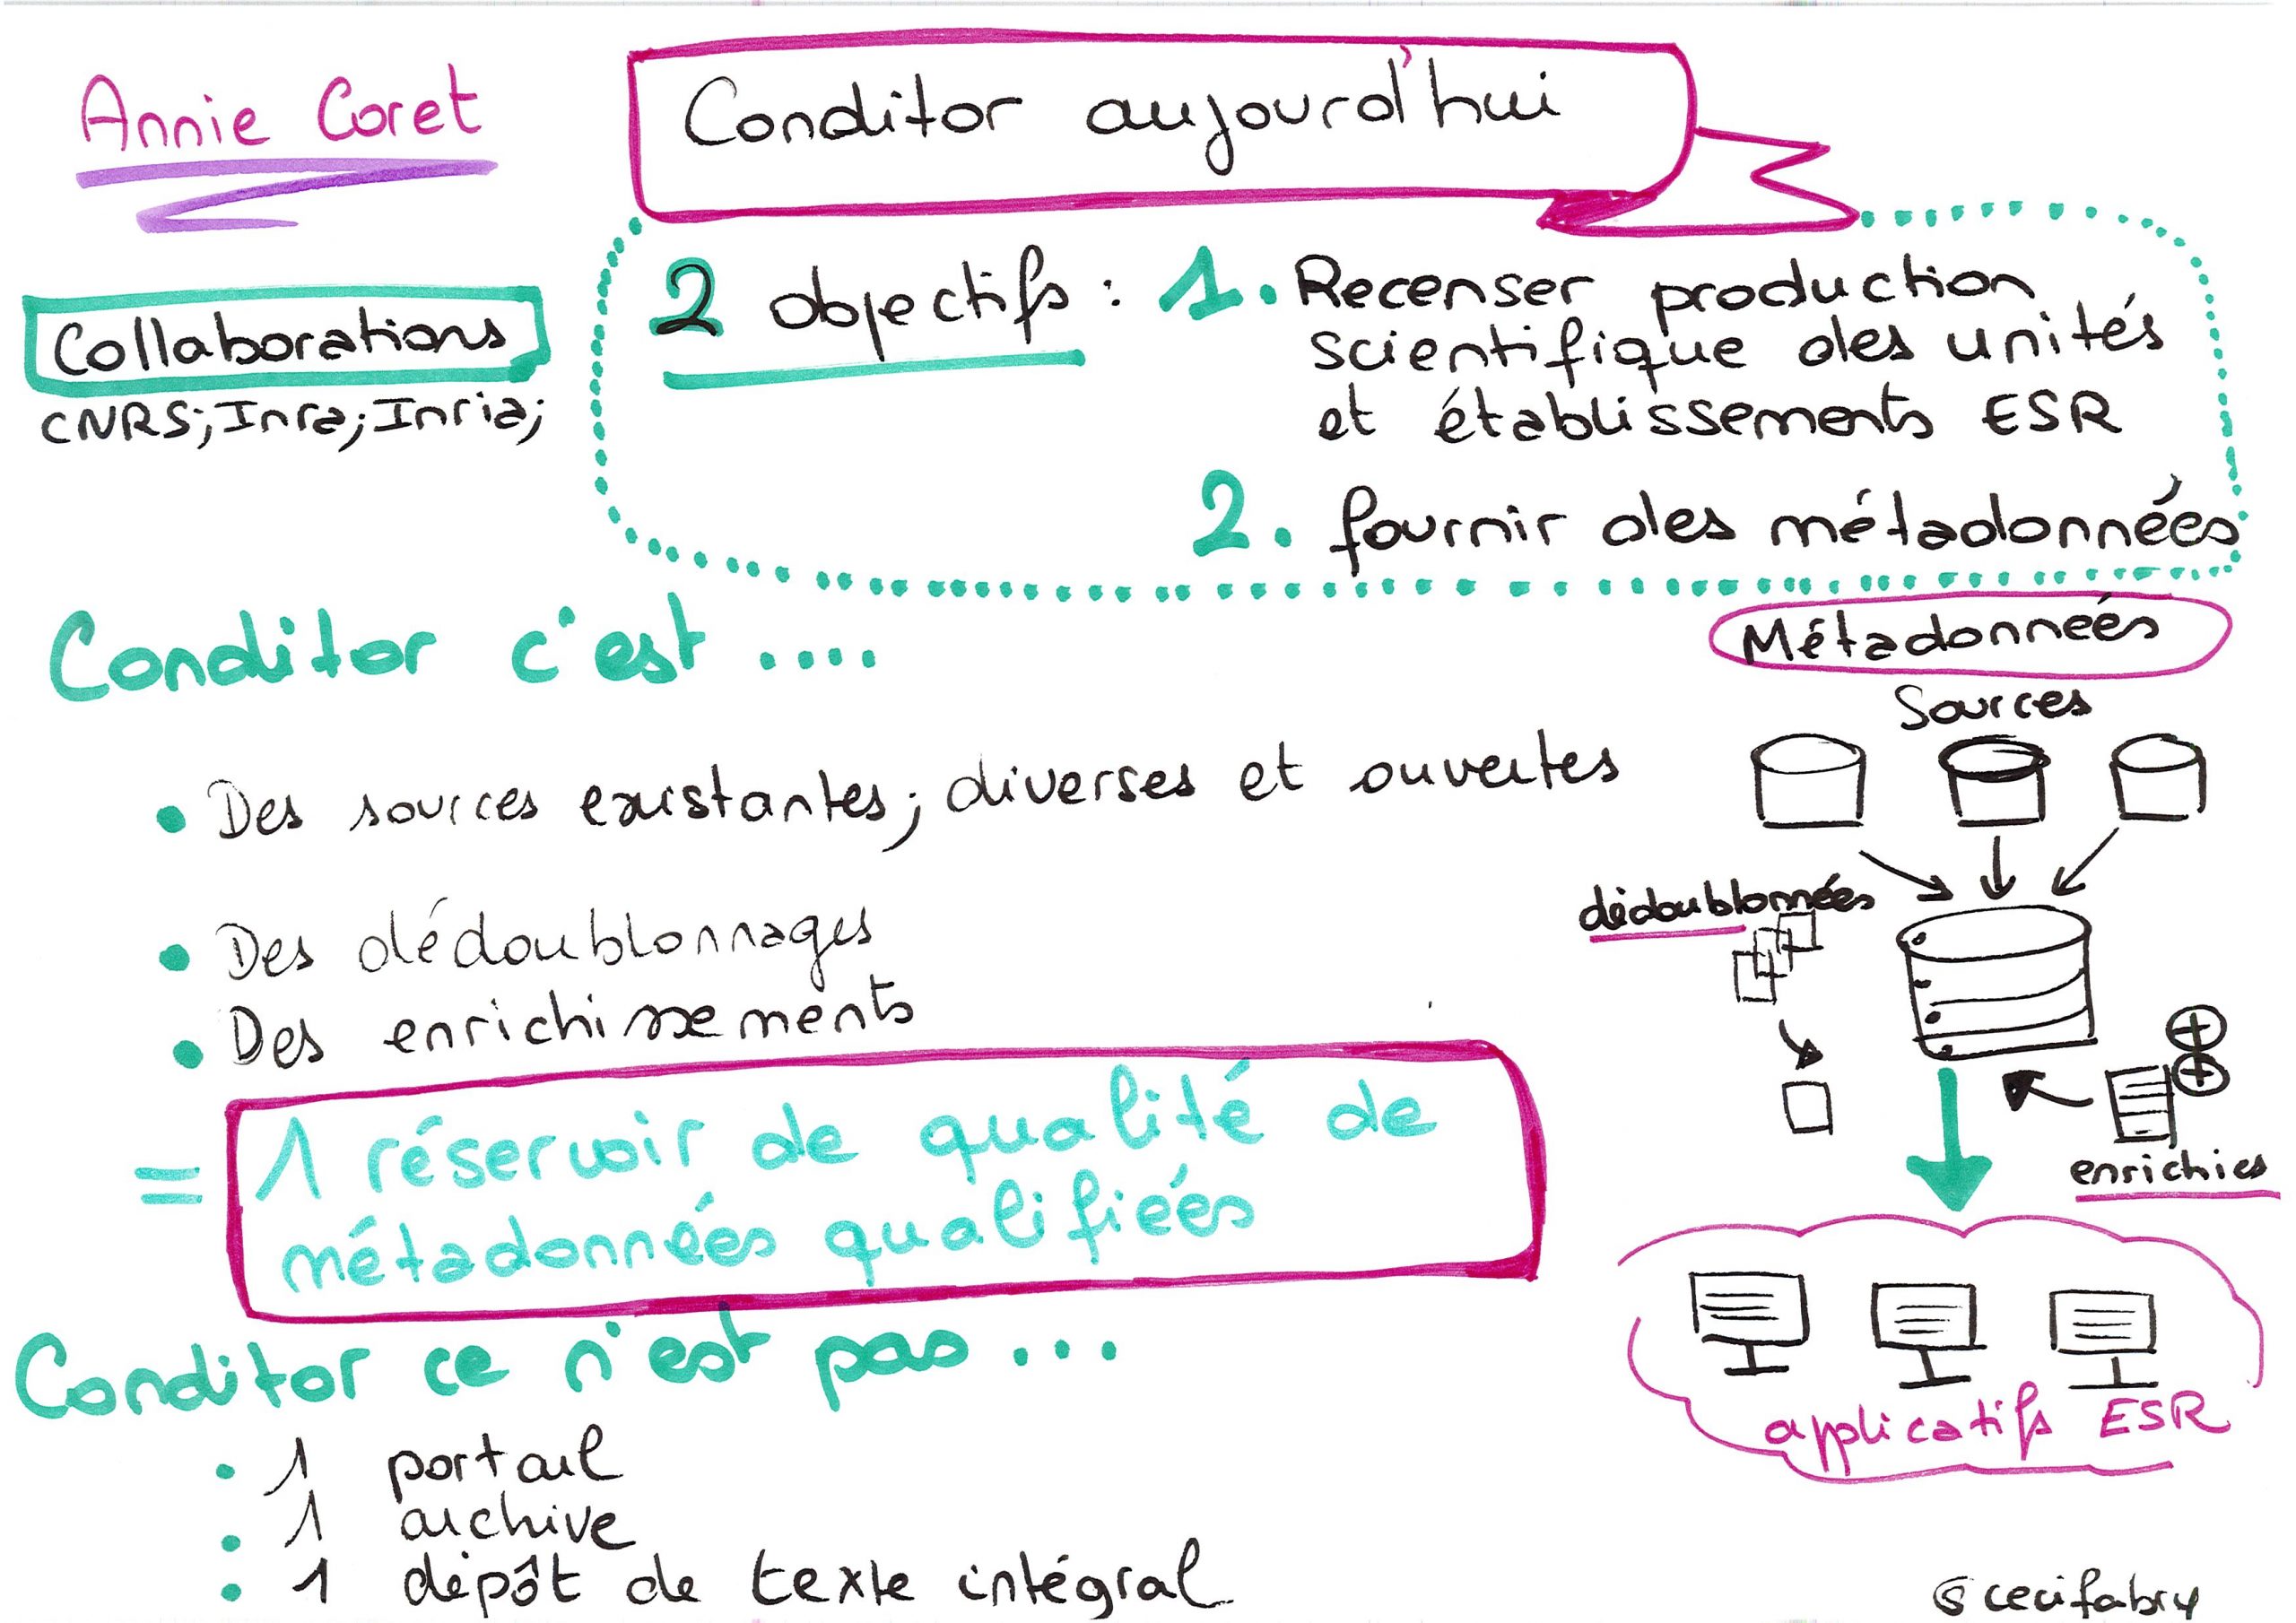 Annie Coret
Conditor aujourd'hui
Collaborations
CNRS; Inra; Inria;
2 objectifs : 1. Recenser production
scientifique des unités
et établissements ESR
2. fournir des métadonnées
Conditor c'est ....
• Des sources existantes; diverses et ouvertes
• Des dédoublonnages
• Des enrichissements
= 1 réservoir de qualité de
métadonnées qualifiées
Métadonnées
Sources
dédoublonnées
enrichies
applicatifs ESR
Conditor ce n'est pas ...
• 1 portail
• 1 archive
• 1 dépôt de texte intégral
@cecifabry